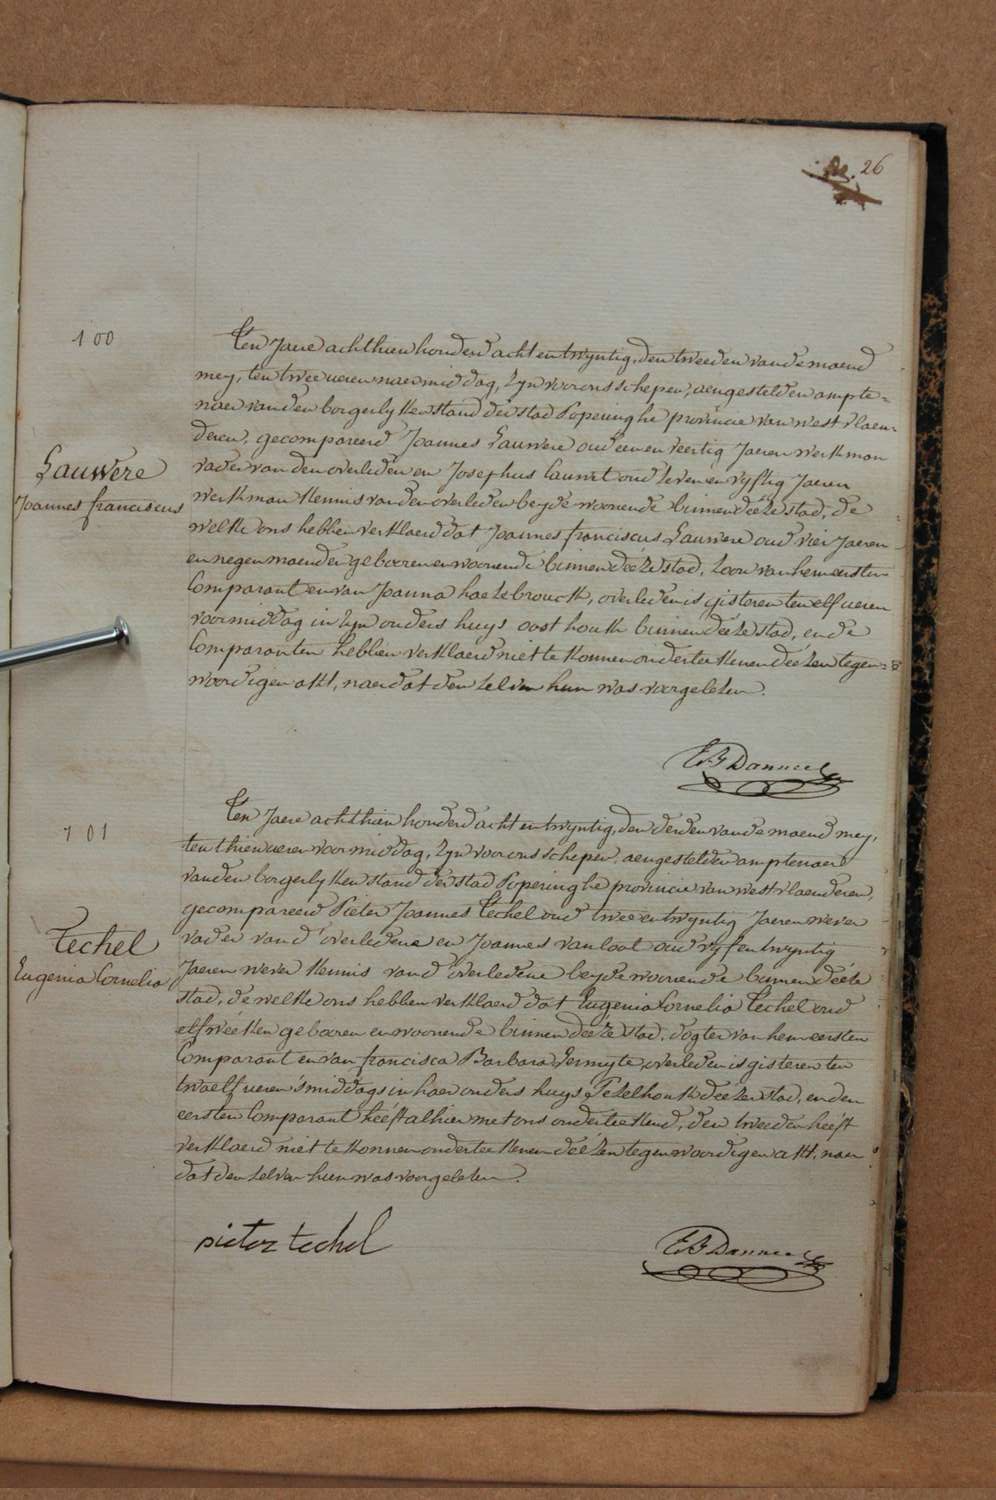 26
100
Ten Jaere achthien honderd acht en twyntig, den tweeden van de maend
mey, ten twee ueren naermiddag, zyn voor ons schepen, aengestelden ampte=
naer van den borgerlyken stand der stad Poperinghe provincie van westvlaen-
deren, gecompareerd Joannes Lauwere oud een en veertig Jaeren werkman
Lauwere
Joannes franciscus
vader van den overleden en Josephus Cauwt oud zeven en vyftig Jaeren
werkman kennis van den overleden beyde woonende binnen deéze stad, de
welke ons hebben verklaerd dat Joannes franciscus Lauwere oud vier Jaeren
en negen maenden gebooren en woonende binnen deéze stad, zoon van hem eersten
Comparant en van Joanna haezebrouck, overleden is gisteren ten elf ueren
voormiddag in zyn ouders huys oost houk binnen deéze stad, en de
Comparanten hebben verklaerd niet te konnen onderteekenen deézen tegen=
woordigen akt, naer dat den zelven hun was voorgelezen.
101
Ten Jaere achthien honderd acht en twyntig, den derden van de maend mey,
ten thien ueren voormiddag, zyn voor ons schepen, aengestelden amptenaer
van den borgerlyken stand der stad Poperinghe provincie van westvlaenderen,
gecompareerd Pieter Joannes Techel oud twee en twyntig Jaeren wever
Techel
Eugenia Cornelia
vader van d'overledene en Joannes vanloot oud vyf en twyntig
Jaeren wever kennis van d'overledene beyde woonende binnen deéze
stad, de welke ons hebben verklaerd dat Eugenia Cornelia Techel oud
elf wéeken gebooren en woonende binnen deéze stad, dogter van hem eersten
Comparant en van francisca Barbara Dermyte, overleden is gisteren ten
twaelf ueren 'smiddags in haer ouders huys Pezelhouk deézer stad, en den
eersten Comparant heéft alhier met ons onderteekend, den tweeden heéft
verklaerd niet te konnen onderteekenen deézen tegenwoordigen akt, naer
dat den zelven hun was voorgelezen.
pieter techel